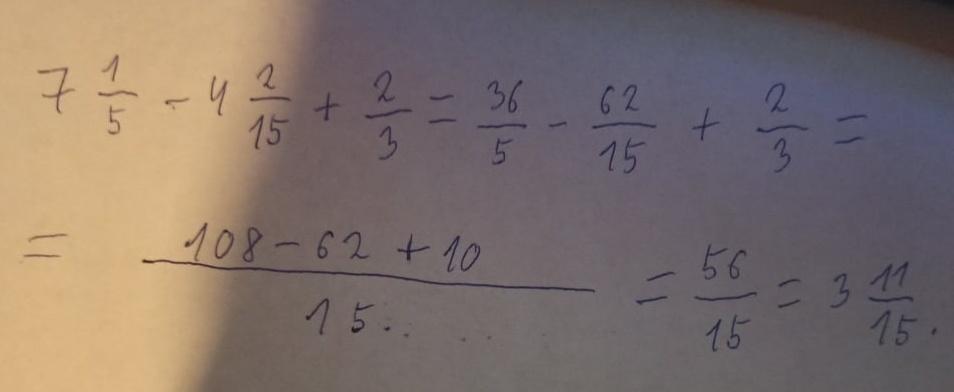 7 1/5 - 4 2/15 + 2/3 = 36/5 - 62/15 + 2/3 =
= (108 - 62 + 10)/15 = 56/15 = 3 11/15.